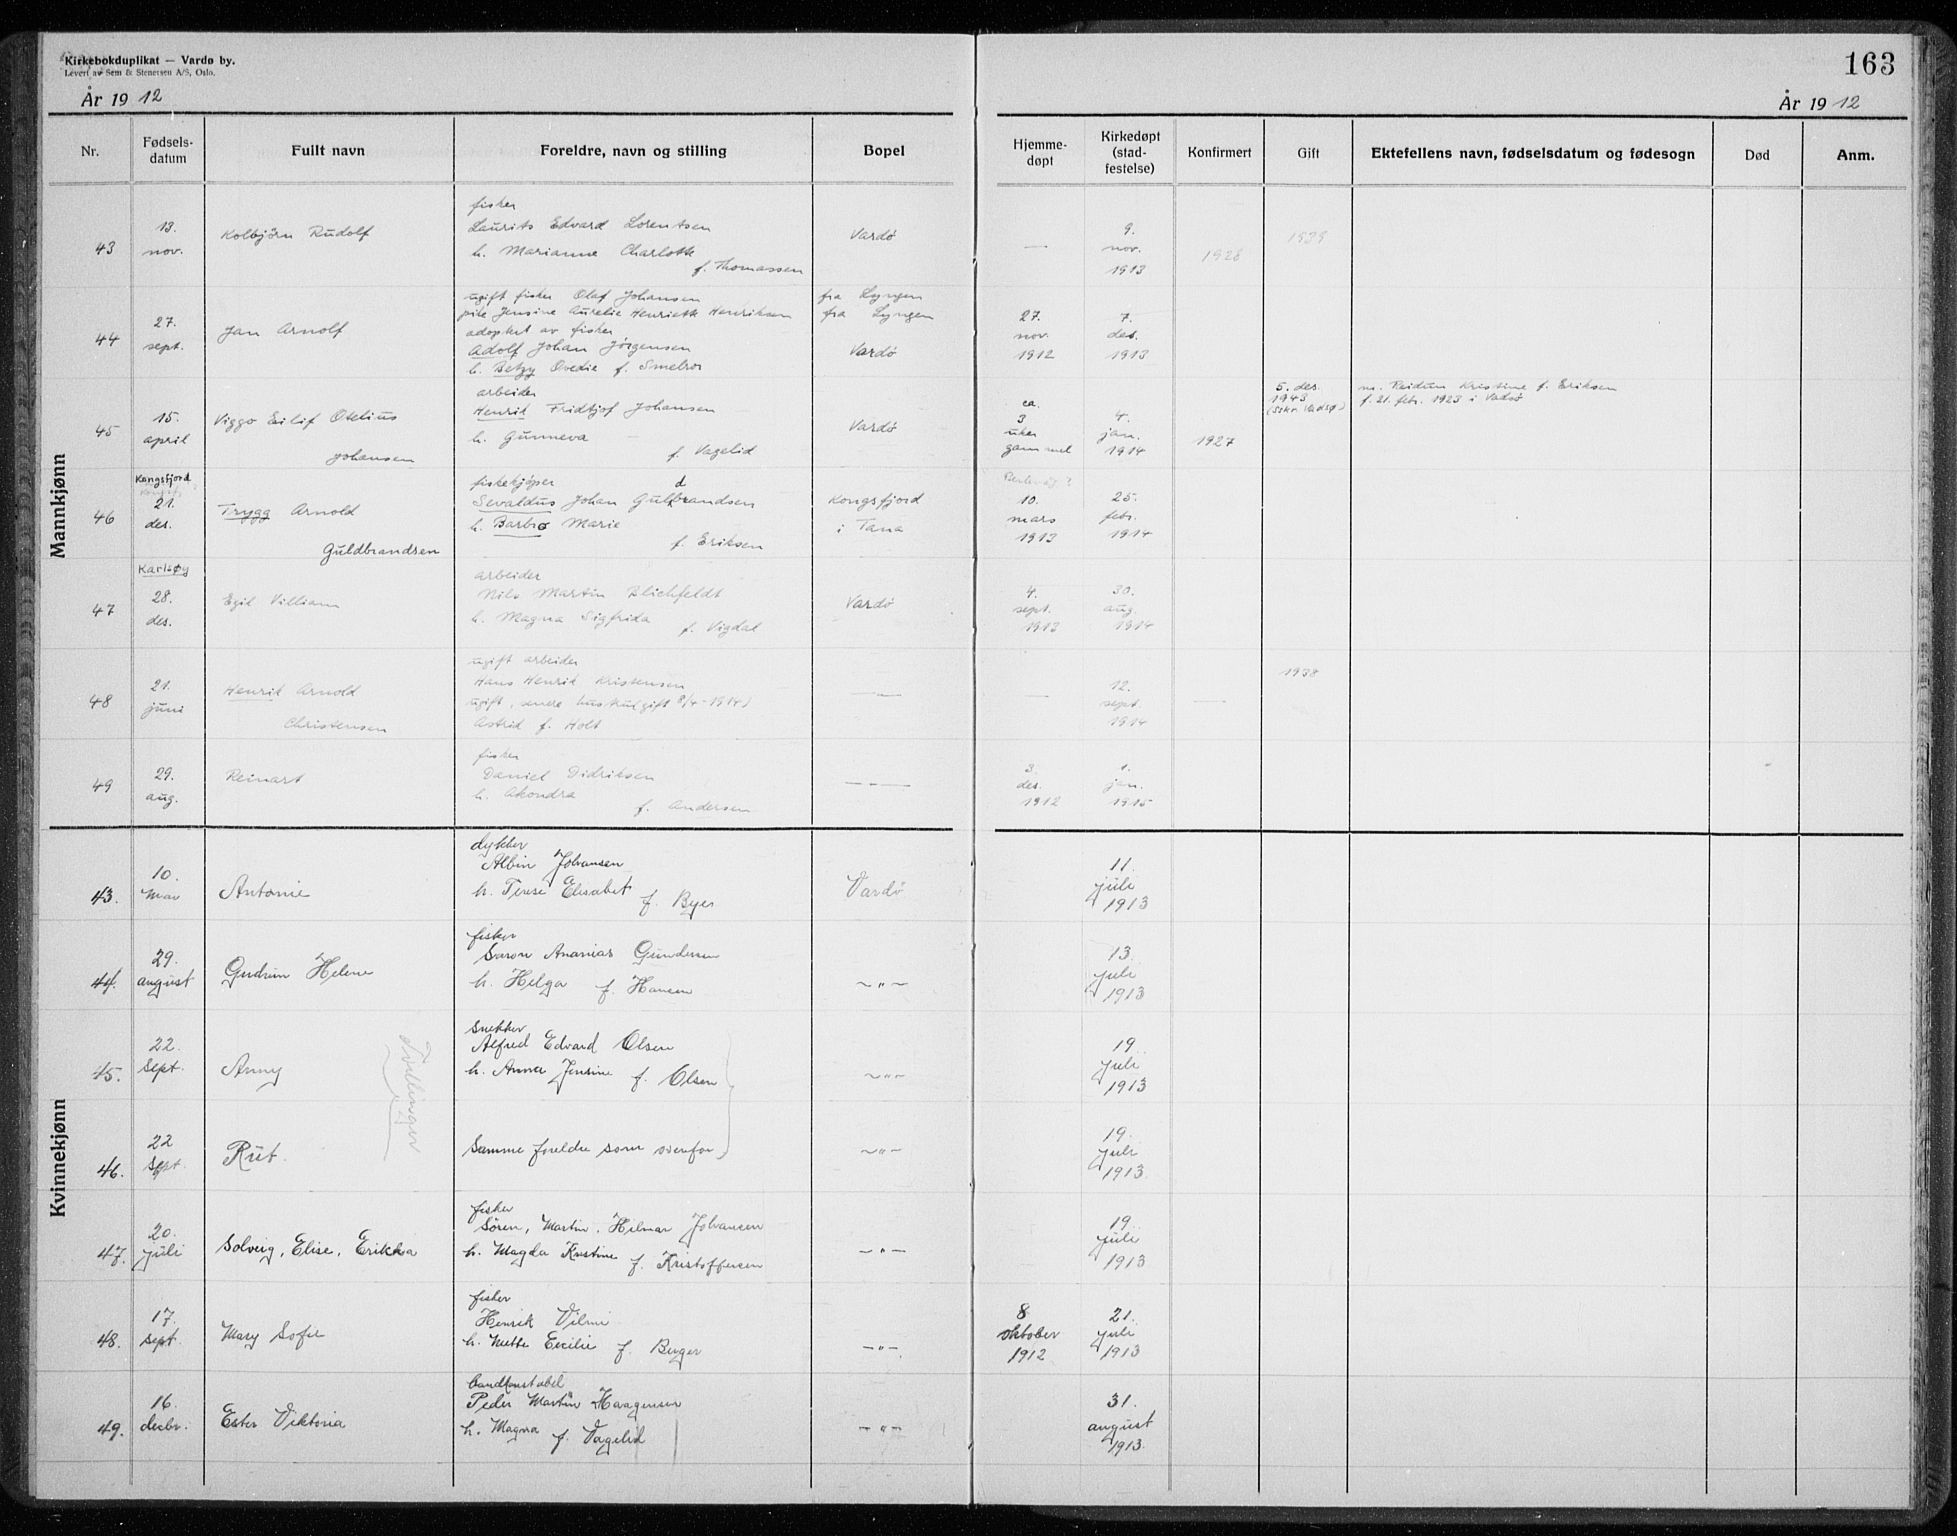 Kirkebokduplikat — Vardø by.
Levert av Sem & Stenersen A/S, Oslo.
År 1912
163
År 1912
Nr.
Fødsels-
datum
Fullt navn
Foreldre, navn og stilling
Bopel
Hjemme-
døpt
Kirkedøpt
(stad-
festelse)
Konfirmert
Gift
Ektefellens navn, fødselsdatum og fødesogn
Død
Anm.
Mannkjønn
43
13.
nov.
Kolbjörn Rudolf
fisker
Laurits Edvard Lorentsen
h. Marianne Charlotte
f. Thomassen
Vardö
—
9.
nov.
1913
1928
1939
44
27.
sept.
Jan Arnolf
ugift fisker Olaf Johansen
pike Jensine Aurelie Henriette Henriksen
adoptert av fisker
Adolf Johan Jörgensen
h. Betzy Ovedie f. Smelror
fra Lyngen
fra Lyngen
Vardö
27.
nov.
1912
7.
des.
1913
45
15.
april
Viggo Eilif Otelius
Johansen
arbeider
Henrik Fridtjof Johansen
h. Gunneva
f. Vagelid
Vardö
ca.
3
uker
gammel
4.
jan.
1914
1927
5. des.
1943
m. Reidun Kristine f. Eriksen
f. 21. febr. 1923 i Vadsö
46
Kongsfjord
21.
des.
Trygg Arnold
Guldbrandsen
fiskekjöper
Sevaldus Johan Guldbrandsen
h. Barbro Marie
f. Eriksen
Kongsfjord
i Tana
10.
mars
1913
25.
febr.
1914
47
Karlsøy
28.
des.
Egil Villiam
arbeider
Nils Martin Blichfeldt
h. Magna Sigfrida
f. Vigdal
Vardö
4.
sept.
1913
30.
aug.
1914
48
21.
juni
Henrik Arnold
Christensen
ugift arbeider
Hans Henrik Kristensen
ugift, senere hustru (gift 8/4-1914)
Astrid f. Holt
— " —
—
12.
sept.
1914
—
1938
49
29.
aug.
Reinart
fisker
Daniel Didriksen
h. Akondra
f. Andersen
— — —
3.
des.
1912
1.
jan.
1915
Kvinnekjønn
43.
10.
Mar
Antonie
dykker
Albin Johansen
h. Terese Elisabet f. Byer
Vardö
11.
juli
1913
44.
29.
august
Gudrun Helene
fisker
Saron Ananias Gundersen
h. Helga f. Hansen
— " —
13.
juli
1913
45.
22.
Sept.
Anny
Tvillinger
Snekker
Alfred Edvard Olsen
h. Anna Jensine f. Olsen
— " —
19.
juli
1913
46.
22
Sept.
Rut.
Samme foreldre som ovenfor
— " —
19.
juli
1913
47.
20.
juli
Solveig, Elise, Erikka
fisker
Sören, Martin, Hilmar Johansen
h. Magda Kristine f. Kristoffersen
— " —
19.
juli
1913
48.
17.
sept.
Mary Sofie
fisker
Henrik Vilmi
h. Mette Cecilie f. Berger
— " —
8
oktober
1912
21.
juli
1913
49.
16.
decbr.
Ester Viktoria
Peder Martin Haagensen
h. Magna f. Vagelid
— " —
31.
august
1913.